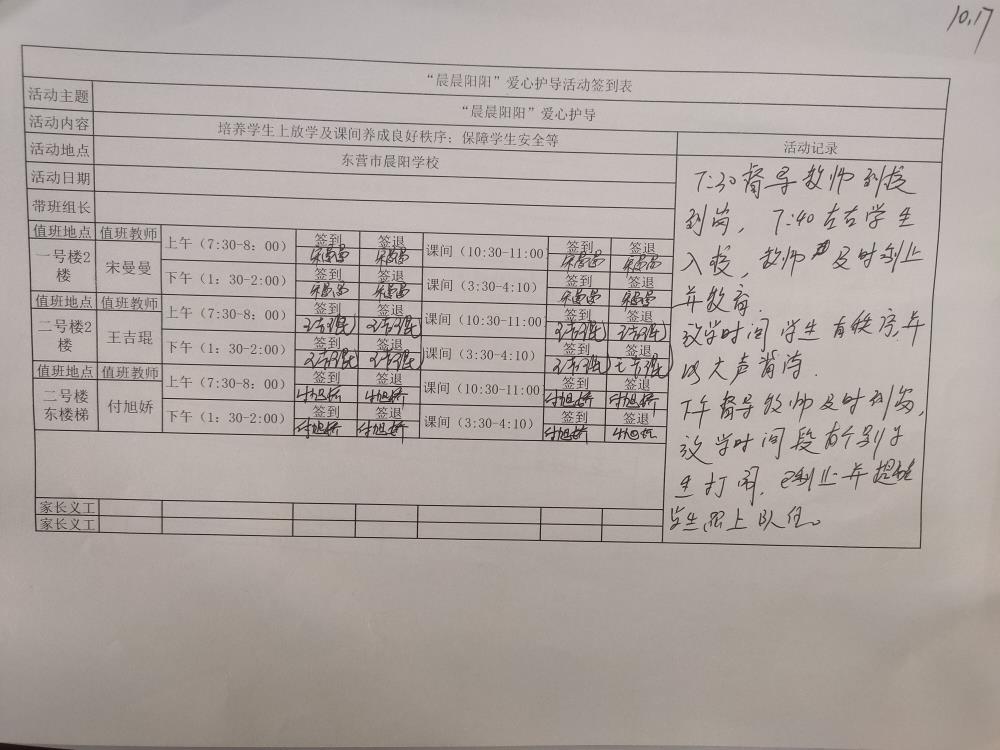 10.17
“晨晨阳阳”爱心护导活动签到表
活动主题 “晨晨阳阳”爱心护导
活动内容 培养学生上放学及课间养成良好秩序；保障学生安全等 活动记录
活动地点 东营市晨阳学校
活动日期
带班组长
值班地点 值班教师 上午（7:30-8：00） 签到 签退 课间（10:30-11:00 签到 签退
一号楼2楼 宋曼曼 宋曼曼 宋曼曼 宋曼曼 宋曼曼
下午（1：30-2:00） 签到 签退 课间（3:30-4:10） 签到 签退
宋曼曼 宋曼曼 宋曼曼 宋曼曼
值班地点 值班教师 上午（7:30-8：00） 签到 签退 课间（10:30-11:00 签到 签退
二号楼2楼 王吉琨 王吉琨 王吉琨 王吉琨 王吉琨
下午（1：30-2:00） 签到 签退 课间（3:30-4:10） 签到 签退
王吉琨 王吉琨 王吉琨 王吉琨
值班地点 值班教师 上午（7:30-8：00） 签到 签退 课间（10:30-11:00 签到 签退
二号楼东楼梯 付旭娇 付旭娇 付旭娇 付旭娇 付旭娇
下午（1：30-2:00） 签到 签退 课间（3:30-4:10） 签到 签退
付旭娇 付旭娇 付旭娇 付旭娇
家长义工
家长义工
7:30督导教师到校
到岗，7:40左右学生
入校，教师及时制止
并教育
放学时间学生有秩序并
以大声背诵.
下午督导教师及时到岗，
放学时间段有个别学
生打闹，已制止并提醒
学生跟上队伍。